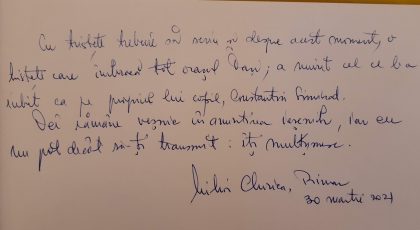 Cu tristețe trebuie să scriu și despre acest moment, o
tristețe care îmbracă tot orașul Iași; a murit cel ce l-a
iubit ca pe propriul lui copil, Constantin Simirad.
Vei rămâne veșnic în amintirea ieșenilor, iar eu
nu pot decât să-ți transmit: îți mulțumesc.
Mihai Chirica, Primar
30 martie 2021